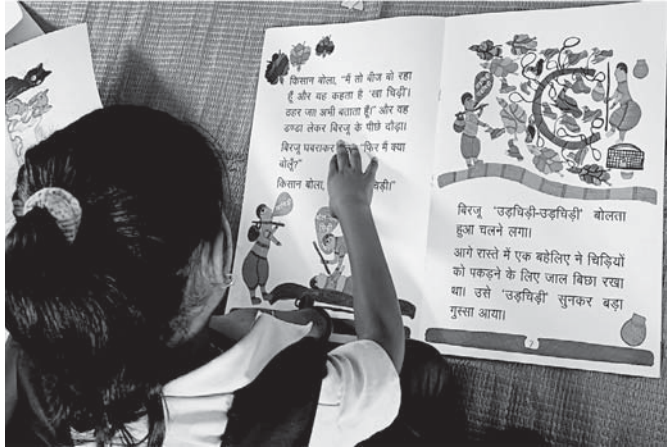 किसान बोला, “मैं तो बीज बो रहा
हूँ और यह कहता है ‘खा चिड़ी’।
ठहर जा! अभी बताता हूँ!” और वह
डण्डा लेकर बिरजू के पीछे दौड़ा।
बिरजू घबराकर “फिर मैं क्या
बोलूँ?”
किसान बोला,
बिरजू ‘उड़चिड़ी-उड़चिड़ी’ बोलता
हुआ चलने लगा।
आगे रास्ते में एक बहेलिए ने चिड़ियों
को पकड़ने के लिए जाल बिछा रखा
था। उसे ‘उड़चिड़ी’ सुनकर बड़ा
गुस्सा आया।
7